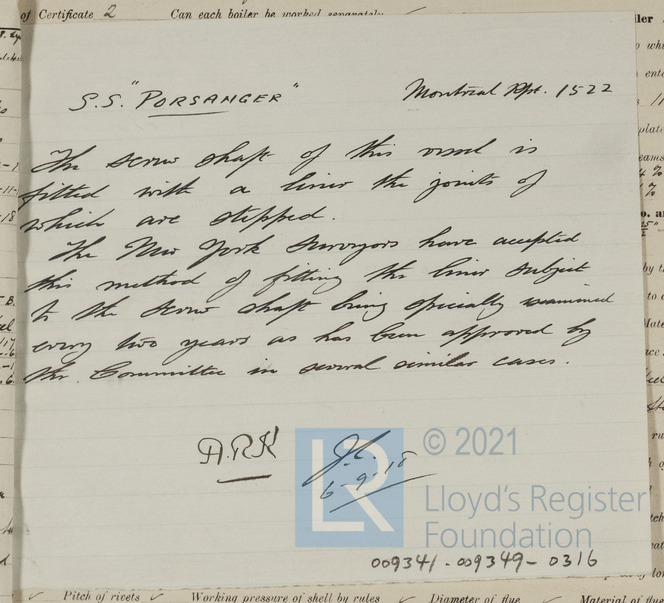 of Certificate 2 Can each boiler be worked separately
S.S. "PORSANGER" Montreal Rpt. 1522
The screw shaft of this vessel is
fitted with a liner the joints of
which are stepped.
The New York Surveyors have accepted
this method of fitting the liner subject
to the screw shaft being specially examined
every two years as has been approved by
the Committee in several similar cases.
A.R.K
6-9-18
LR © 2021
Lloyd's Register
Foundation
009341-009349-0316
Pitch of rivets Working pressure of shell by rules Diameter of flue Material of flue